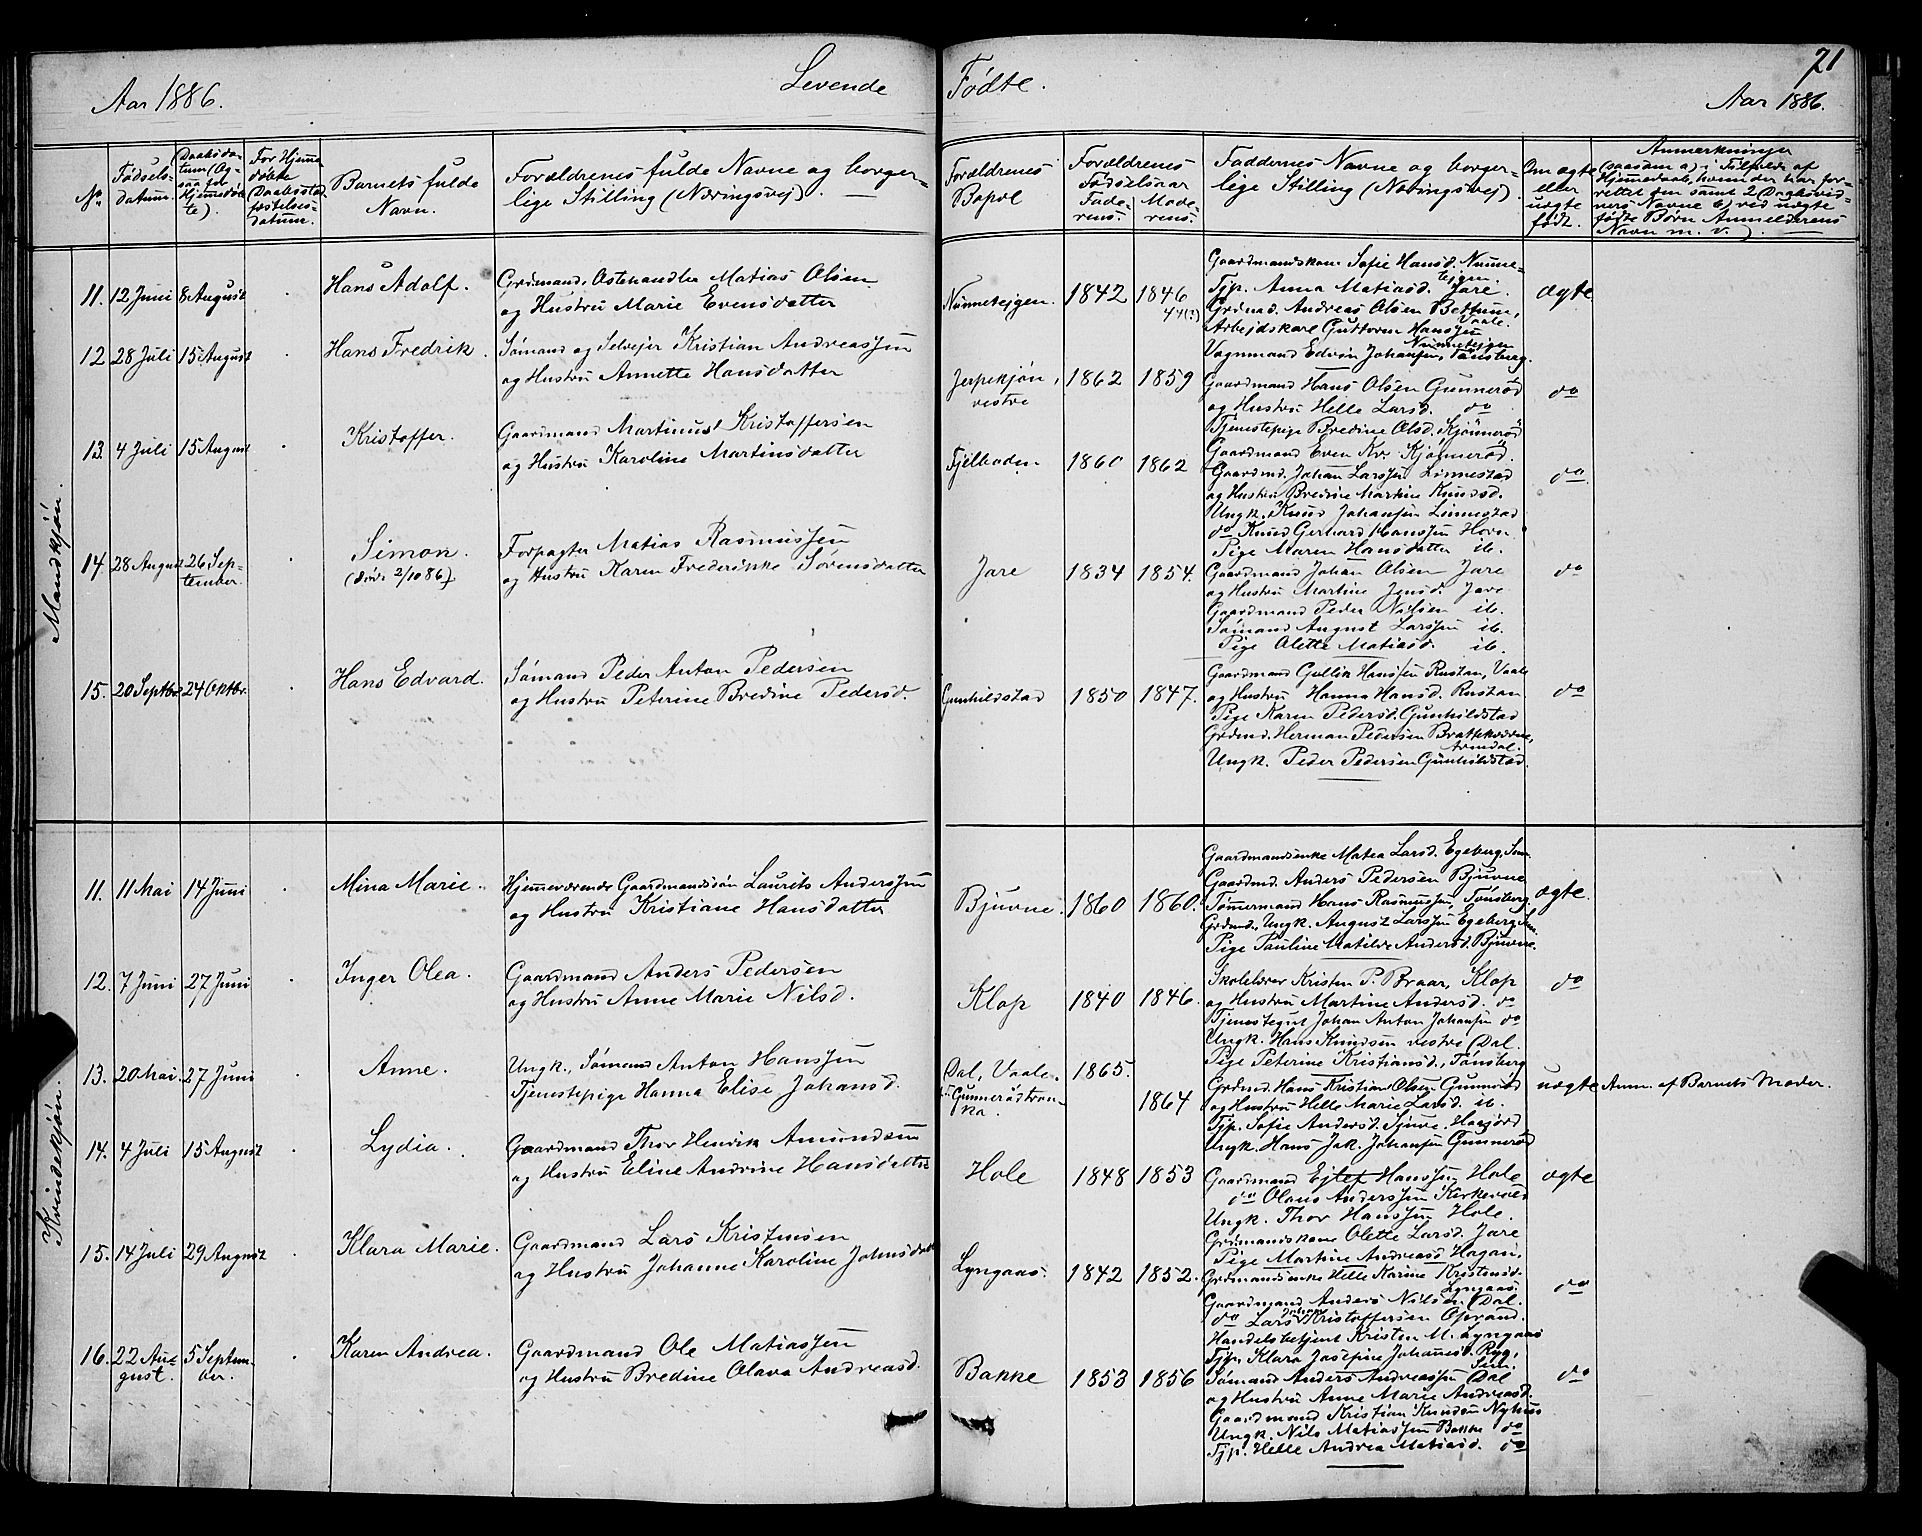 71
Aar 1886.
Levende
Fødte.
Aar 1886.
No.
Fødsels-
datum.
Daabsda-
tum (Og-
saa for
Hjemmedøb-
te).
For Hjemme-
døbte
Daabsstad-
fæstelses-
datum.
Barnets fulde
Navn.
Forældrenes fulde Navne og borger-
lige Stilling (Næringsvej)
Forældrenes
Bopæl
Forældrenes
Fødselsaar
Fade-
rens.
Mode-
rens.
Faddernes Navne og borger-
lige Stilling (Næringsvej).
Om ægte
eller
uægte
født.
Anmerkninger
(saasom a) i Tilfælde af
Hjemmedaab, hvem der har for-
rettet den samt 2 Daabsvid-
ners Navne b) ved uægte
fødte Børn Anmelderens
Navn m. v.)
Mandkjøn.
11. 12 Juni 8 August
Hans Adolf.
Grdmand, Ostehandler Matias Olsen
og Hustru Marie Evensdatter
Nummetejgen. 1842 1846
44(?)
Gaardmandskone Sofie Hansd. Numme-
tejgen
Tjp. Anna Matiasd. Jare.
Grdmd. Andreas Olsen Bettum,
Vaale.
Arbejdskarl Guttorm Hanssen
Nummetejgen
Vognmand Edvin Johansen, Tønsberg.
ægte
12 28 Juli 15 August
Hans Fredrik.
Sømand og Selvejer Kristian Andreassen
og Hustru Annette Hansdatter
Jerpekjøn,
vestre
1862 1859
Gaardmand Hans Olsen Gunnerød
og Hustru Helle Larsd. do
Tjenestepige Bredine Olsd. Kjønnerød
Gaardmand Even Kr. Kjønnerød.
do
13. 4 Juli 15 August
Kristoffer.
Gaardmand Martinus Kristoffersen
og Hustru Karoline Martinsdatter
Fjelboden 1860 1862
Gaardmd. Johan Larssen Linnestad
og Hustru Bredine Martine Knudsd.
Ungk. Knud Johansen Linnestad
do Knud Gerhard Hanssen Horn.
Pige Maren Hansdatter ib.
do
14. 28 August 26 Sep-
tember.
Simon.
(død 2/10 86)
Forpagter Matias Rasmussen
og Hustru Karen Frederikke Sørensdatter
Jare 1834 1854.
Gaardmand Johan Olsen Jare
og Hustru Martine Jensd. Jare
Gaardmand Peder Nilsen ib.
Sømand August Larssen ib.
Pige Olette Matiasd. ib.
do
15. 20 Septbr 24 Oktbr.
Hans Edvard.
Sømand Peder Anton Pedersen
og Hustru Peterine Bredine Pedersd.
Gunhildstad 1850 1847.
Gaardmand Gullik Hanssen Rustan, Vaale
og Hustru Hanna Hansd. Rustan
Pige Karen Pedersd. Gunhildstad
Grdmd. Herman Pedersen Brattekværne,
Arendal.
Ungk. Peder Pedersen Gunhildstad.
do
Kvindekjøn.
11. 11 Mai 14 Juni
Mina Marie.
Hjemmeværende Gaardmandssøn Laurits Anderssen
og Hustru Kristiane Hansdatter
Bjuvne. 1860 1860.
Gaardmandsenke Matea Larsd. Egeberg, Sem.
Gaardmd. Anders Pedersen Bjuvne
Tømmermand Hans Rasmussen, Tønsberg
Grdmd., Ungk. August Larssen Egeberg, Sem.
Pige Pauline Matilde Andersd. Bjuvne.
ægte.
12. 7 Juni 27 Juni
Inger Olea.
Gaardmand Anders Pedersen
og Hustru Anne Marie Nilsd.
Klop 1840 1846.
Skolelærer Kristen P. Braar, Klop
og Hustru Martine Andersd. do
Tjenestegut Johan Anton Johansen do
Ungk. Hans Knudsen vestre Dal.
Pige Peterine Kristiansd., Tønsberg
do
13. 20 Mai. 27 Juni
Anne.
Ungk., Sømand Anton Hanssen
Tjenestepige Hanna Elise Johansd.
Dal, Vaale. 1865.
Gunnerødtran-
ka.
1864
Grdmd. Hans Kristian Olsen Gunnerød
og Hustru Helle Marie Larsd. ib.
Tjp. Sofie Andersd. Hogjord
Ungk. Hans Jak. Johansen Gunnerød
uægte Anm. af Barnets Moder.
14. 4 Juli 15 August
Lydia.
Gaardmand Thor Henrik Amundsen
og Hustru Eline Andrine Hansdatter
Hole 1848 1853
Gaardmand Ejlef Hanssen Hole
do Olaus Anderssen Kirkevold
Ungk. Thor Hanssen Hole.
Grdmandskone Olette Larsd. Jare
Pige Martine Andreasd. Hagan.
ægte
15. 14 Juli 29 August
Klara Marie.
Gaardmand Lars Kristensen
og Hustru Johanne Karoline Johnsdatt
Lyngaas. 1842 1852.
Grdmandsenke Helle Karine Kristensd.
Lyngaas.
Gaardmand Anders Nilsen Dal.
do Lars Johan Kristoffersen Oprand.
Handelsbetjent Kristen M. Lyngaas
Tjp. Klara Josefine Johannesd. Ryg,
Sem.
do
16. 22 Au-
gust.
5 Septem-
ber.
Karen Andrea.
Gaardmand Ole Matiassen
og Hustru Bredine Olava Andreasd.
Bakke 1853 1856
Sømand Anders Andreassen Dal
og Hustru Anne Marie Andreasd.
Gaardmand Kristian Knudsen Nyhus
Ungk. Nils Matiassen Bakke do
Tjp. Helle Andrea Matiasd. do
do